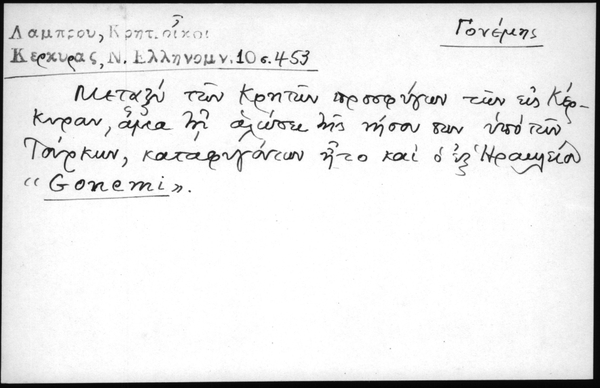 Λαμπρου, Κρητ. οἶκοι
Γονέμης
Κερκυρας, Ν. Ελληνομν. 10 σ. 453
Μεταξύ τῶν Κρητῶν προσφύγων τῶν εἰς Κέρ-
κυραν, ἅμα τῇ ἁλώσει τῆς νήσου των ὑπό τῶν
Τούρκων, καταφυγόντων ἦτο καί ὁ ἐξ Ἡρακλείου
"Gonemi".